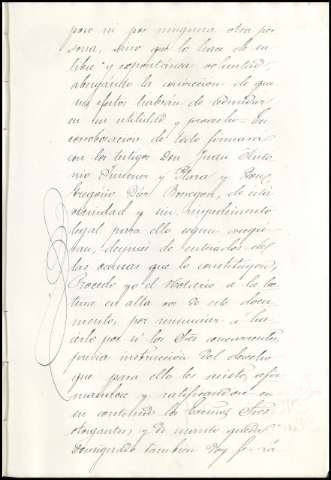 poso ni por ninguna otra per
sona, sino que lo hace de su
libre y espontánea voluntad,
abrigando la convicción de que
sus efectos habrán de redundar
en su utilidad y provecho. En
corroboración de todo firmará
con los testigos Don Juan Anto
nio y Don
Gregorio Díaz de esta
vecindad y sin impedimento
legal para ello segun asegu
ran, después de enterados de
las demas que lo constituyen,
Procedo yo el Notario a la lec
tura en alta voz de este docu
mento, por renunciar á ha
cerlo por si los Sres concurrentes,
prévia instrucción del derecho
que para ello les asiste, afir
mandose y ratificandose en
su contenido los Sres
otorgantes, y de cuanto queda
consignado tambien doy fe. Ra